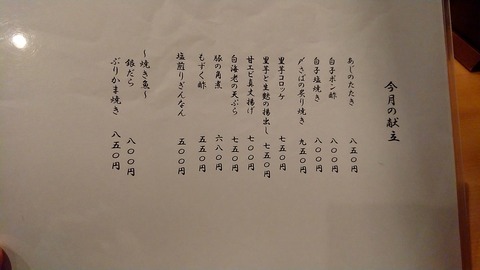 今月の献立
あじのたたき 八五〇円
白子ポン酢 八〇〇円
白子塩焼き 八〇〇円
〆さばの炙り焼き 九五〇円
里芋コロッケ 七五〇円
里芋と生麩の揚出し 七五〇円
甘エビ真丈揚げ 七〇〇円
白海老の天ぷら 七五〇円
豚の角煮 六八〇円
もずく酢 五五〇円
塩煎りぎんなん 五〇〇円
〜焼き魚〜
銀だら 八〇〇円
ぶりかま焼き 八五〇円